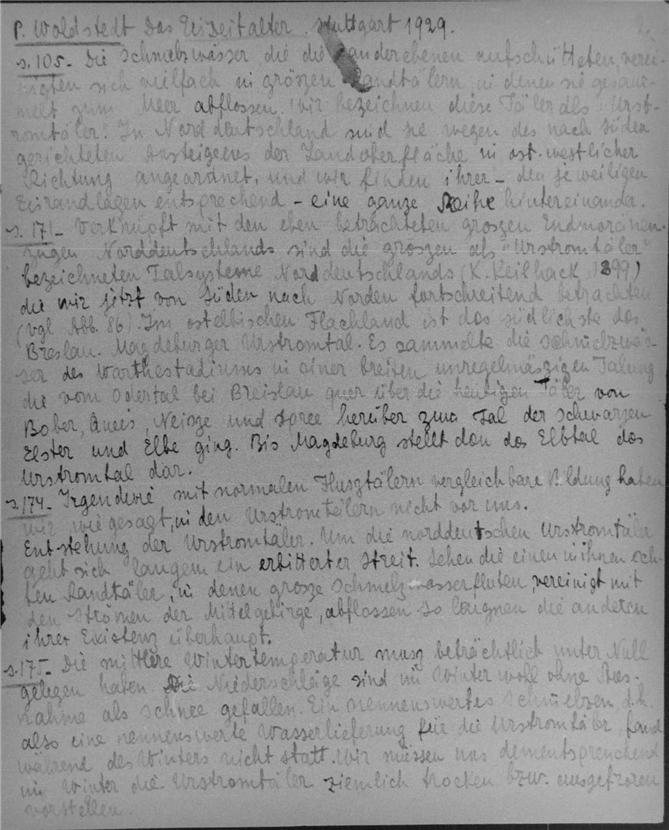 P. Woldstedt Das Eiszeitalter. Stuttgart 1929.
s.105. Die Schmelzwässer die die Sanderebenen aufschütteten, verei-
nigten sich vielfach in groszen Randtälern, in denen sie gesam-
melt zum Meer abflossen. Wir bezeichnen diese Täler als "Urst-
romtäler". In Norddeutschland sind sie wegen des nach Süden
gerichteten Ansteigens der Landoberfläche in ost-westlicher
Richtung angeordnet, und wir finden ihrer - den jeweiligen
Eisrandlagen entsprechend - eine ganze Reihe hintereinander.
s.171. Verknüpft mit den eben betrachteten groszen Endmoränen-
zügen Norddeutschlands sind die groszen als "Urstromtäler"
bezeichneten Talsysteme Norddeutschlands (K. Keilhack 1899)
die wir jetzt von Süden nach Norden fortschreitend betrachten
(vgl. Abb. 86). Im ostelbischen Flachland ist das südlichste das
Breslau. Magdeburger Urstromtal. Es sammelte die Schmelzwäs-
ser des Warthestadiums in einer breiten unregelmässigen Talung
die vom Odertal bei Breslau quer über die heutigen Täler von
Bober, Queis, Neisze und Spree herüber zum Tal der schwarzen
Elster und Elbe ging. Bis Magdeburg stellt dan das Elbtal das
Urstromtal dar.
s.174. Irgendwie mit normalen Flusztälern vergleichbare Bildung haben
wir wie gesagt, in den Urstromtälern nicht vor uns.
Entstehung der Urstromtäler. Um die norddeutschen Urstromtäler
geht seit langem ein erbitterter Streit. Sehen die einen in ihnen ech-
ten Randtäler, in denen grosze Schmelzwasserfluten, vereinigt mit
den Strömen der Mittelgebirge, abflossen so leugnen die anderen
ihrer Existenz überhaupt.
s.175. Die mittlere Wintertemperatur musz beträchtlich unter Null
gelegen haben. Die Niederschläge sind im Winter wohl ohne Aus-
nahme als Schnee gefallen. Ein nennenswertes Schmelzen, d.h.
also eine nennenswerte Wasserlieferung für die Urstromtäler, fand
während des Winters nicht statt. Wir müssen uns dementsprechend
im Winter die Urstromtäler ziemlich trocken bzw. ausgefroren
vorstellen.